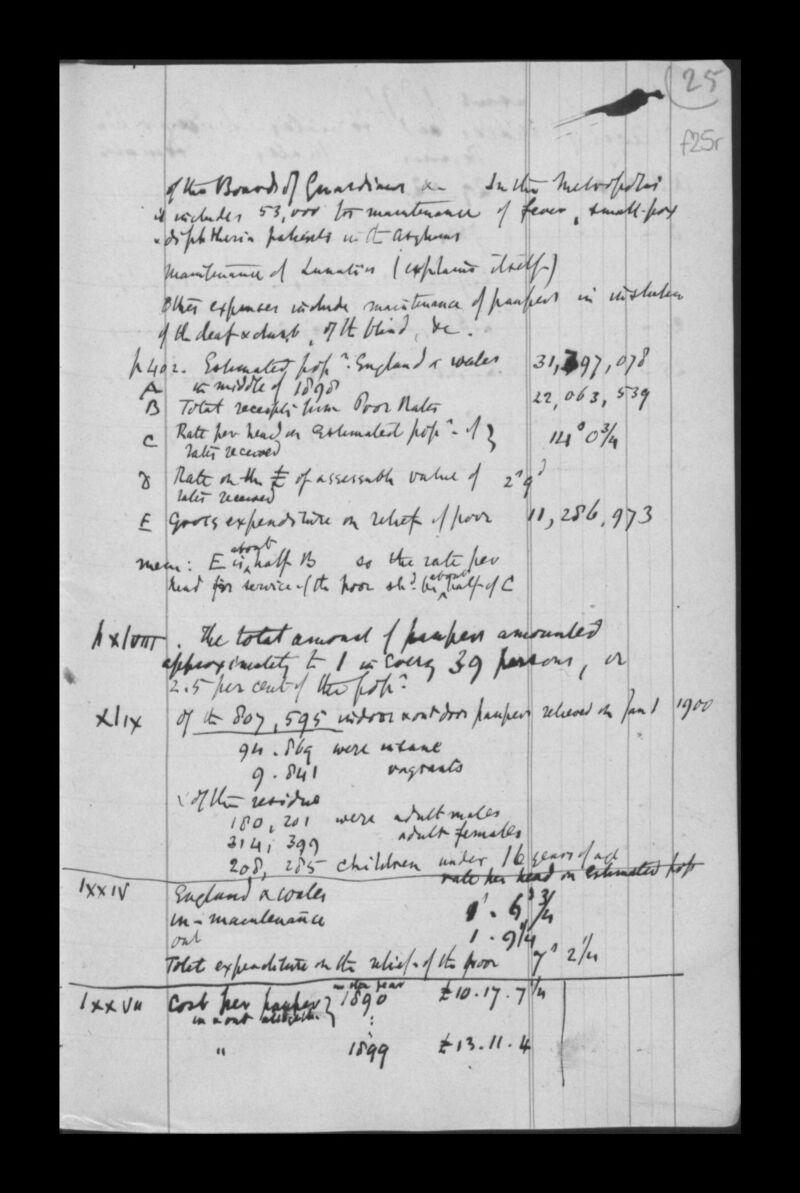 25
f25r
of the Boards of Guardians &c In the Metropolis
it includes 53,000 for maintenance of fever, small-pox
& diphtheria patients in the Asylums
Maintenance of Lunatics (explains itself)
Other expenses include maintenance of paupers in institution
of the deaf & dumb, of the blind, &c.
p 402. Estimated popn. England & Wales 31,397,078
A in middle of 1898
B Total receipts from Poor Rates 22,063,539
C Rate per head on Estimated popn. of } 14s 0 3/4
rates received
D Rate on the £ of assessable value of 2s 9d
rates received
E Gross expenditure on relief of poor 11,286,973
mem: E is about half B so the rate per
head for service of the poor shd. be about half of C
p xlviii. The total amount of paupers amounted
approximately to 1 in every 39 persons, or
2.5 per cent of the popn.
xlix of the 807,595 indoor & outdoor paupers relieved on Jan 1 1900
94.869 were insane
9.841 vagrants
of the residue
180,201 were adult males
314,399 adult females
208,285 children under 16 years of age
rate per head on estimated popn
lxxiv England & Wales
in-maintenance 1s. 6 3/4
out 1. 9 1/4
Total expenditure on the relief of the poor 7s 2 1/4
lxxvii Cost per pauper } in the year 1890 £10.17.7 1/4
in & out altogether
" 1899 £13.11.4